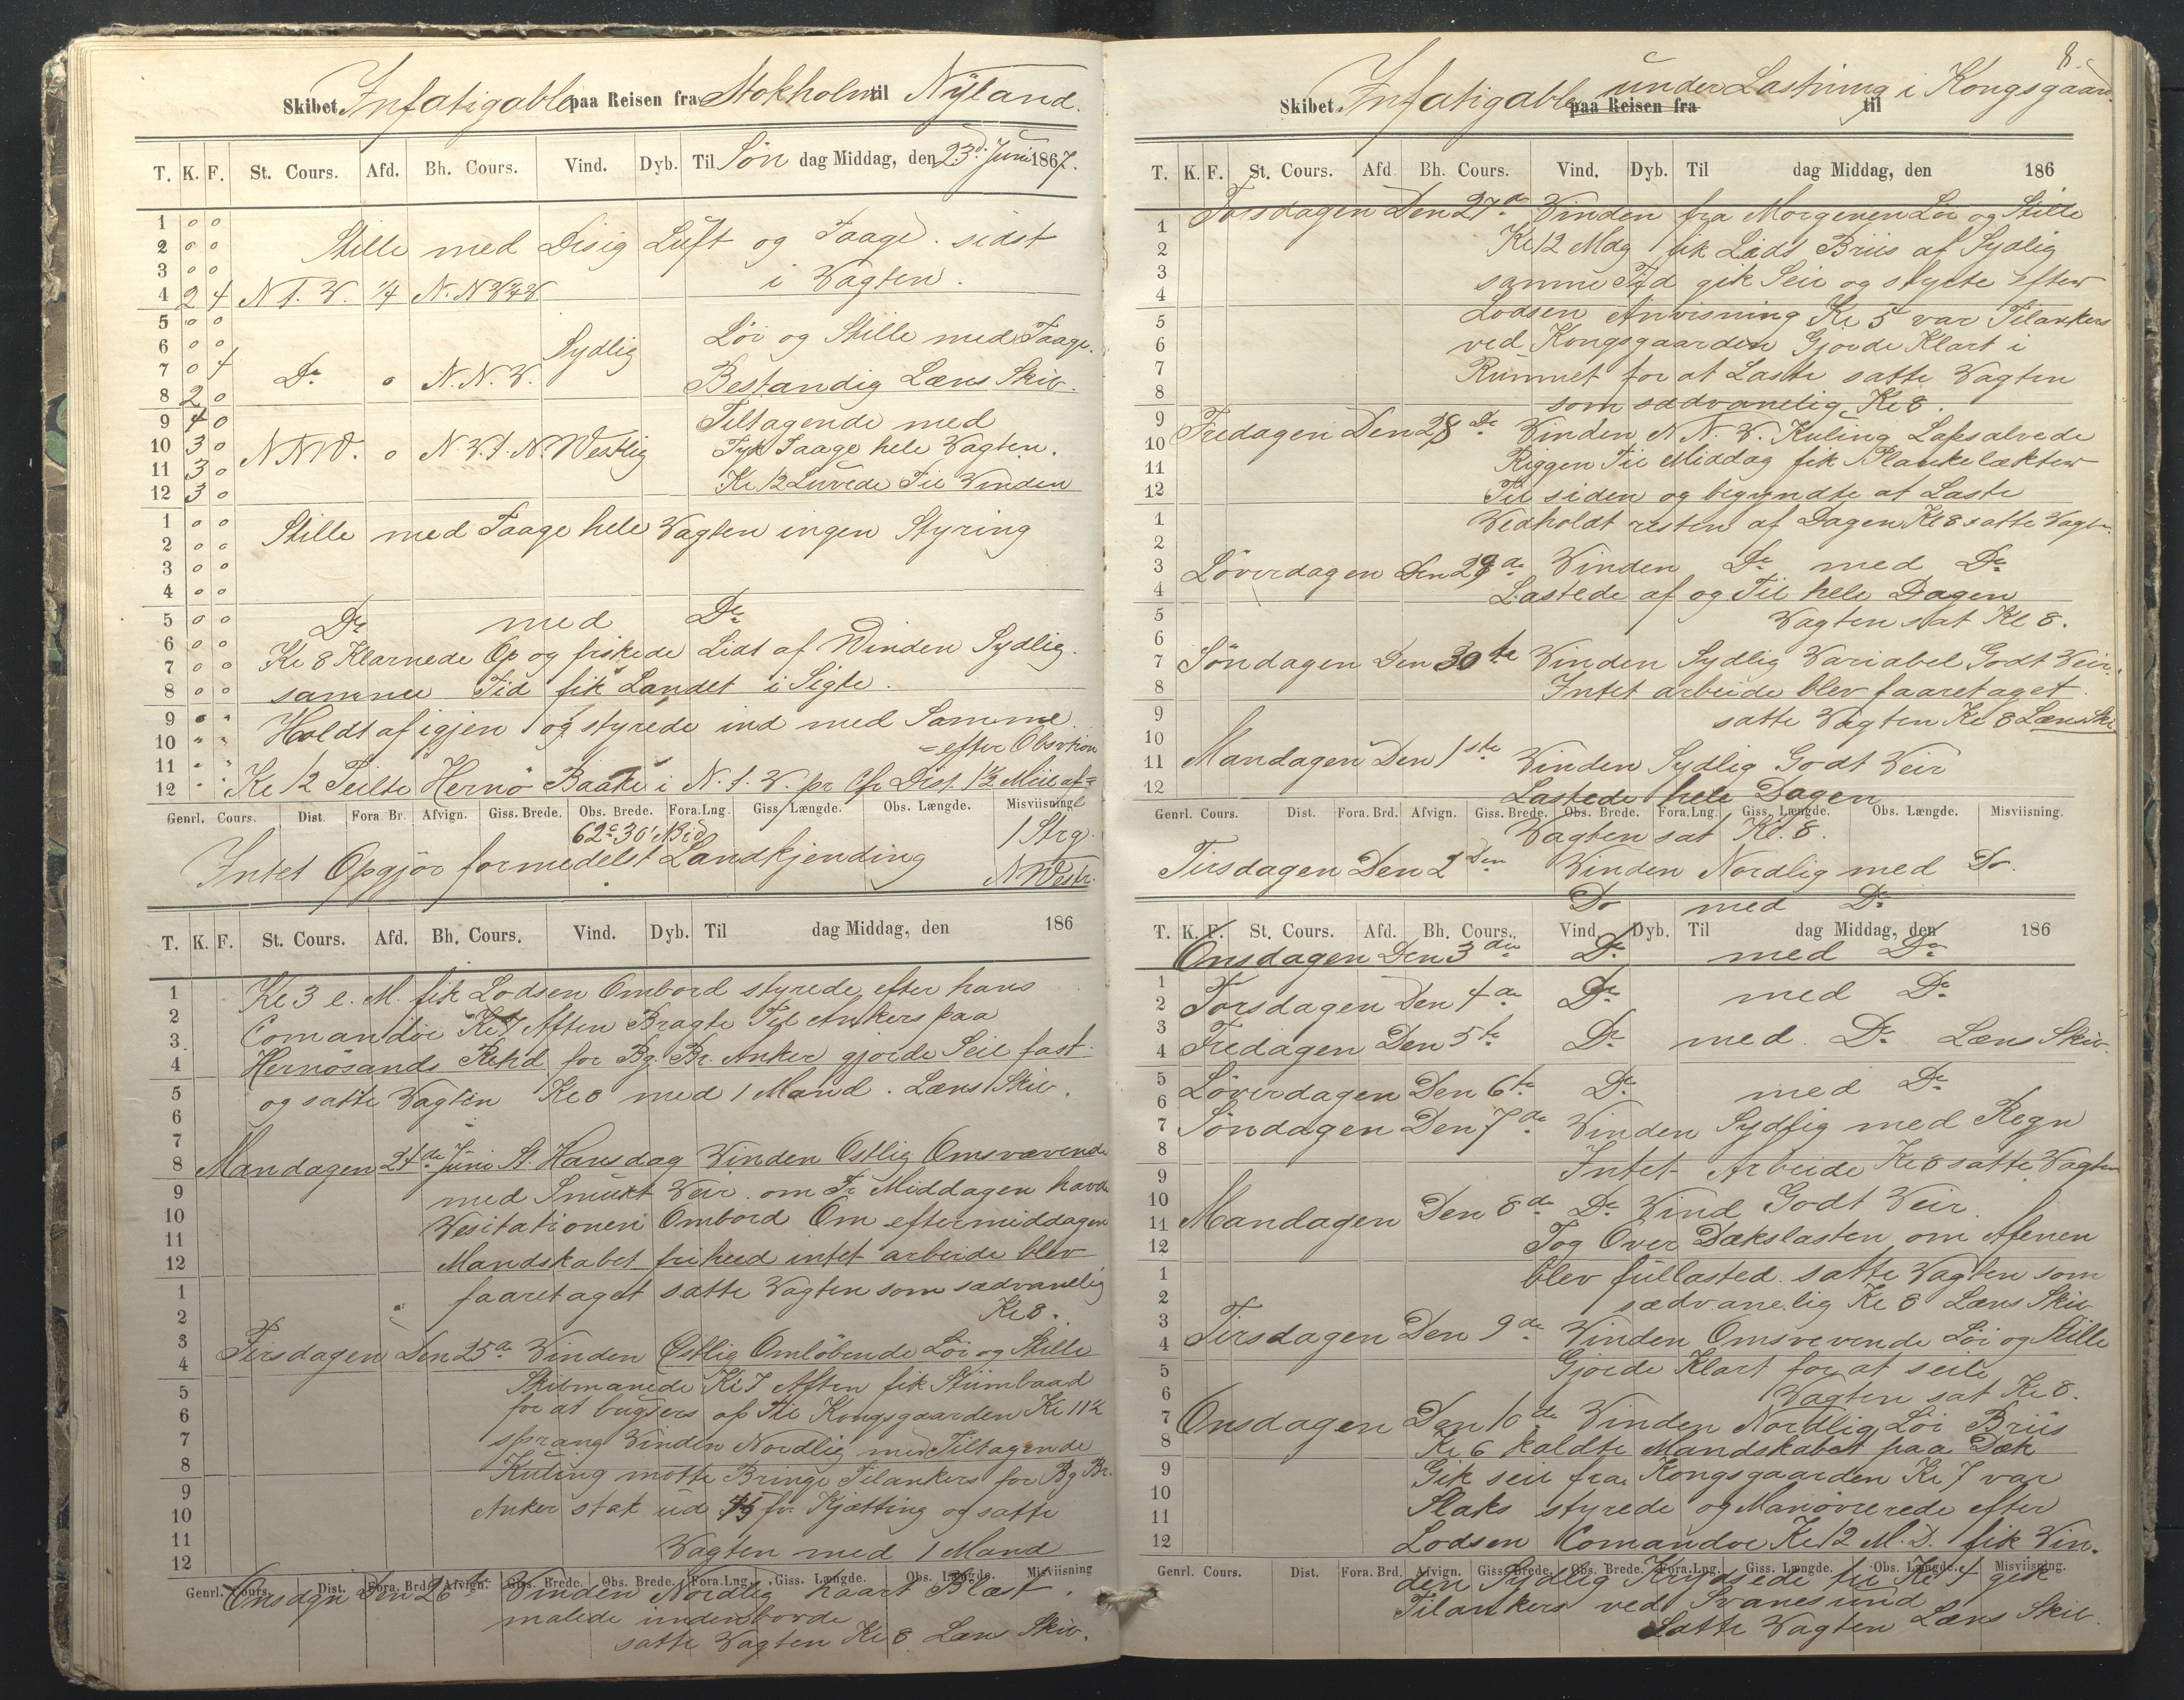 Skibet Infatigable paa Reisen fra Stokholm til Nÿland.
T. K. F. St. Cours. Afd. Bh. Cours. Vind. Dyb. Til Søn dag Middag, den 23d. Juni 1867.
1 0 0
2 0 0 Stille med Disig Luft og Taage. sidst
3 0 0 i Vagten.
4 2 4 N t. W. 1/4 N. N W 3/4 W
5 0 0
6 0 0 Sydlig Löi og Stille med Taage.
7 0 4 Do 0 N. N. W.
8 2 0 Bestandig Læns Skib.
9 4 0 Tiltagende med
10 3 0 N N W. 0 N. W. t. N. Westlig Tyk Taage hele Vagten.
11 3 0
12 3 0 Kl 12 Luvede Til Vinden
1 0 0 Stille med Taage hele Vagten ingen Styring
2 0 0
3 0 0
4 0 0
5 0 0 Do med Do
6 0 0 Kl 8 Klarnede Op og friskede Lidt af Winden Sydlig.
7 0 0
8 0 0 samme Tid fik Landet i Sigte.
9 " " Holdt af igjen og styrede ind med Samme
10 " " = efter Obsvtion
11 " "
12 " " Kl 12 Peilte Hernö Baake i N. t. W. pr Cps Dist. 1 1/2 Miil af =
Genrl. Cours. Dist. Fora. Br. Afvign. Giss. Brede. Obs. Brede. Fora. Lng. Giss. Længde. Obs. Længde. Misviisning
62° 30' N Brd 1 Strg.
Intet Opgjör formedelst Landkjending N Westr.
T. K. F. St. Cours. Afd. Bh. Cours. Vind. Dyb. Til dag Middag, den 186
1 Kl 3 e. M. fik Lodsen Ombord styrede efter hans
2 Comandoe Kl 7 Aften Bragte Til Ankers paa
3
4 Hernösands Rehd for Bg. Br. Anker gjorde Seil fast
5 og satte Vagten Kl 8 med 1 Mand. Læns Skib.
6
7
8 Mandagen 24de Juni St. Hansdag Vinden Ostlig Omsvævende
9 med Smukt Veir. om Fr Middagen havde
10 Vesitationen Ombord Om eftermiddagen
11
12 Mandskabet friheed intet arbeide blev
1 faaretaget satte Vagten som sædvanelig
2 Kl 8.
3 Tirsdagen Den 25de Vinden Östlig Omlöbende Löi og Stille
4
5 Skibmanede Kl 7 Aften fik Stümbaad
6 for at bugsers op Til Kongsgaarden Kl 11 1/2
7 sprang Vinden Nordlig med Tiltagende
8 Kuling motte Bringe Tilankers for Bg Br.
9
10 Anker stak ud 45 fv. Kjætting og satte
11 Vagten med 1 Mand
12
Genrl. Cours. Dist. Fora. Brd. Afvign. Giss. Brede. Obs. Brede. Fora. Lng. Giss. Længde. Obs. Længde. Misviisning
Onsdgn Den 26te Vinden Nordlig haart Blæst.
malede indenborde
satte Vagten Kl 8 Læns Skib.
8.
Skibet Infatigable paa Reisen fra under Lastning i Kongsgaard. til
T. K. F. St. Cours. Afd. Bh. Cours. Vind. Dyb. Til dag Middag, den 186
Torsdagen Den 27de Vinden fra Morgenen Löi og Stille
1 Kl 12 Mdg fik Lidt Briis af Sydlig
2
3 samme Tid gik Seil og styrte efter
4 Lodsen Anvisning Kl 5 var Tilankers
5
6 ved Kongsgaarden Gjorde Klart i
7 Rummet for at Laste satte Vagten
8 som sædvanelig Kl 8.
9 Fredagen Den 28de Vinden N N. W. Kuling Lapsalvede
10
11 Riggen Til Middag fik Plankelækter
12 Til siden og begyndte at Laste
1 Vedholdt resten af Dagen Kl 8 satte Vagten.
2
3 Löverdagen Den 29de Vinden Do med Do
4 Lastede af og Til hele Dagen
5 Vagten sat Kl 8.
6
7 Söndagen Den 30te Vinden Sydlig Variabel Godt Veir.
8 Intet arbeide blev faaretaget
9 satte Vagten Kl 8 Læns Ski
10
11 Mandagen Den 1ste Vinden Sydlig Godt Veir
12 Lastede hele Dagen
Genrl. Cours. Dist. Fora. Brd. Afvign. Giss. Brede. Obs. Brede. Fora. Lng. Giss. Længde. Obs. Længde. Misviisning.
Vagten sat Kl. 8.
Tirsdagen Den 2den Vinden Nordlig med Do.
Do med Do
T. K. F. St. Cours. Afd. Bh. Cours. Vind. Dyb. Til dag Middag, den 186
Onsdagen Den 3die Do med Do
1
2 Torsdagen Den 4de Do med Do
3
4 Fredagen Den 5te Do med Do Læns Skib.
5
6 Löverdagen Den 6te Do med Do
7 Söndagen Den 7de Vinden Sydlig med Regn
8 Intet Arbeide Kl 8 satte Vagten
9
10 Mandagen Den 8de Do Vind Godt Veir.
11
12 Tog Over Dækslasten om Afenen
1 blev fullasted. satte Vagten som
2 sædvanelig Kl 8 Læns Skib
3 Tirsdagen Den 9de Vinden Omsvevende Löi og Stille
4
5 Gjorde Klart for at seile
6 Vagten sat Kl 8.
7 Onsdagen Den 10de Vinden Nordlig Löi Briis
8 Kl 6 kaldte Mandskabet paa Dæk
9 Gik seil fra Kongsgaarden Kl 7 var
10
11 Slaks styrede og Manövrerede efter
12 Lodsen Comandoe Kl 12 M. D. fik Vin-
Genrl. Cours. Dist. Fora. Brd. Afvign. Giss. Brede. Obs. Brede. Fora. Lng. Giss. Længde. Obs. Længde. Misviisning.
den Sydlig Krydsede til Kl 4 gik
Tilankers ved Svanesund
Satte Vagten Læns Skib.